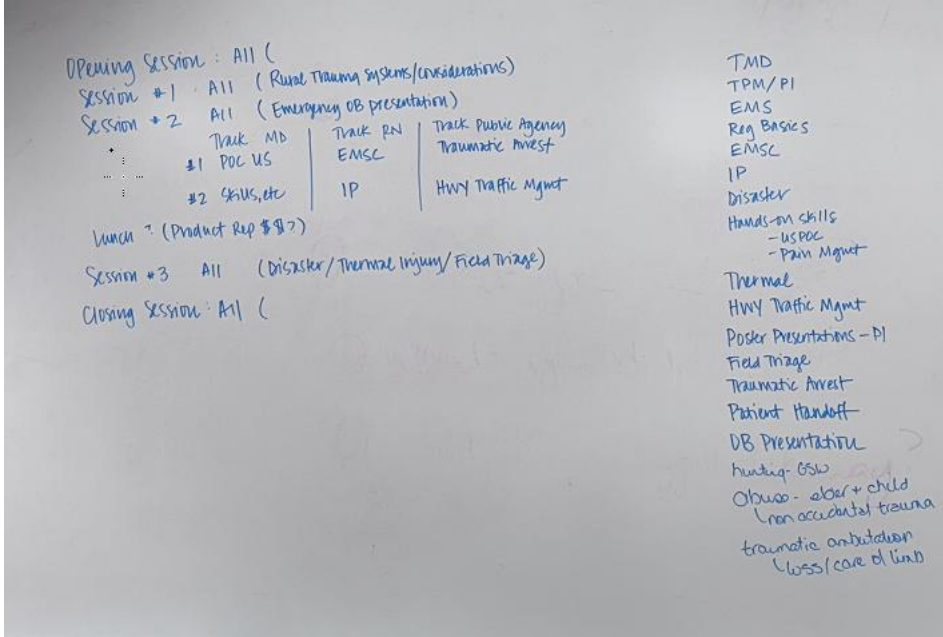 Opening Session : All (
Session #1 All (Rural Trauma Systems/considerations)
Session #2 All (Emergency OB presentation)
Track MD Track RN Track Public Agency
#1 POC US EMSC Traumatic Arrest
#2 Skills, etc IP Hwy Traffic Mgmt
Lunch ? (Product Rep $$?)
Session #3 All (Disaster/Thermal Injury/Field Triage)
Closing Session : All (
TMD
TPM/PI
EMS
Reg Basics
EMSC
IP
Disaster
Hands-on skills
- USPOC
- Pain Mgmt
Thermal
HWY Traffic Mgmt
Poster Presentations - PI
Field Triage
Traumatic Arrest
Patient Handoff
OB Presentation
hunting - GSW
Abuse - elder + child
non accidental trauma
traumatic ambutation
loss/care of limb